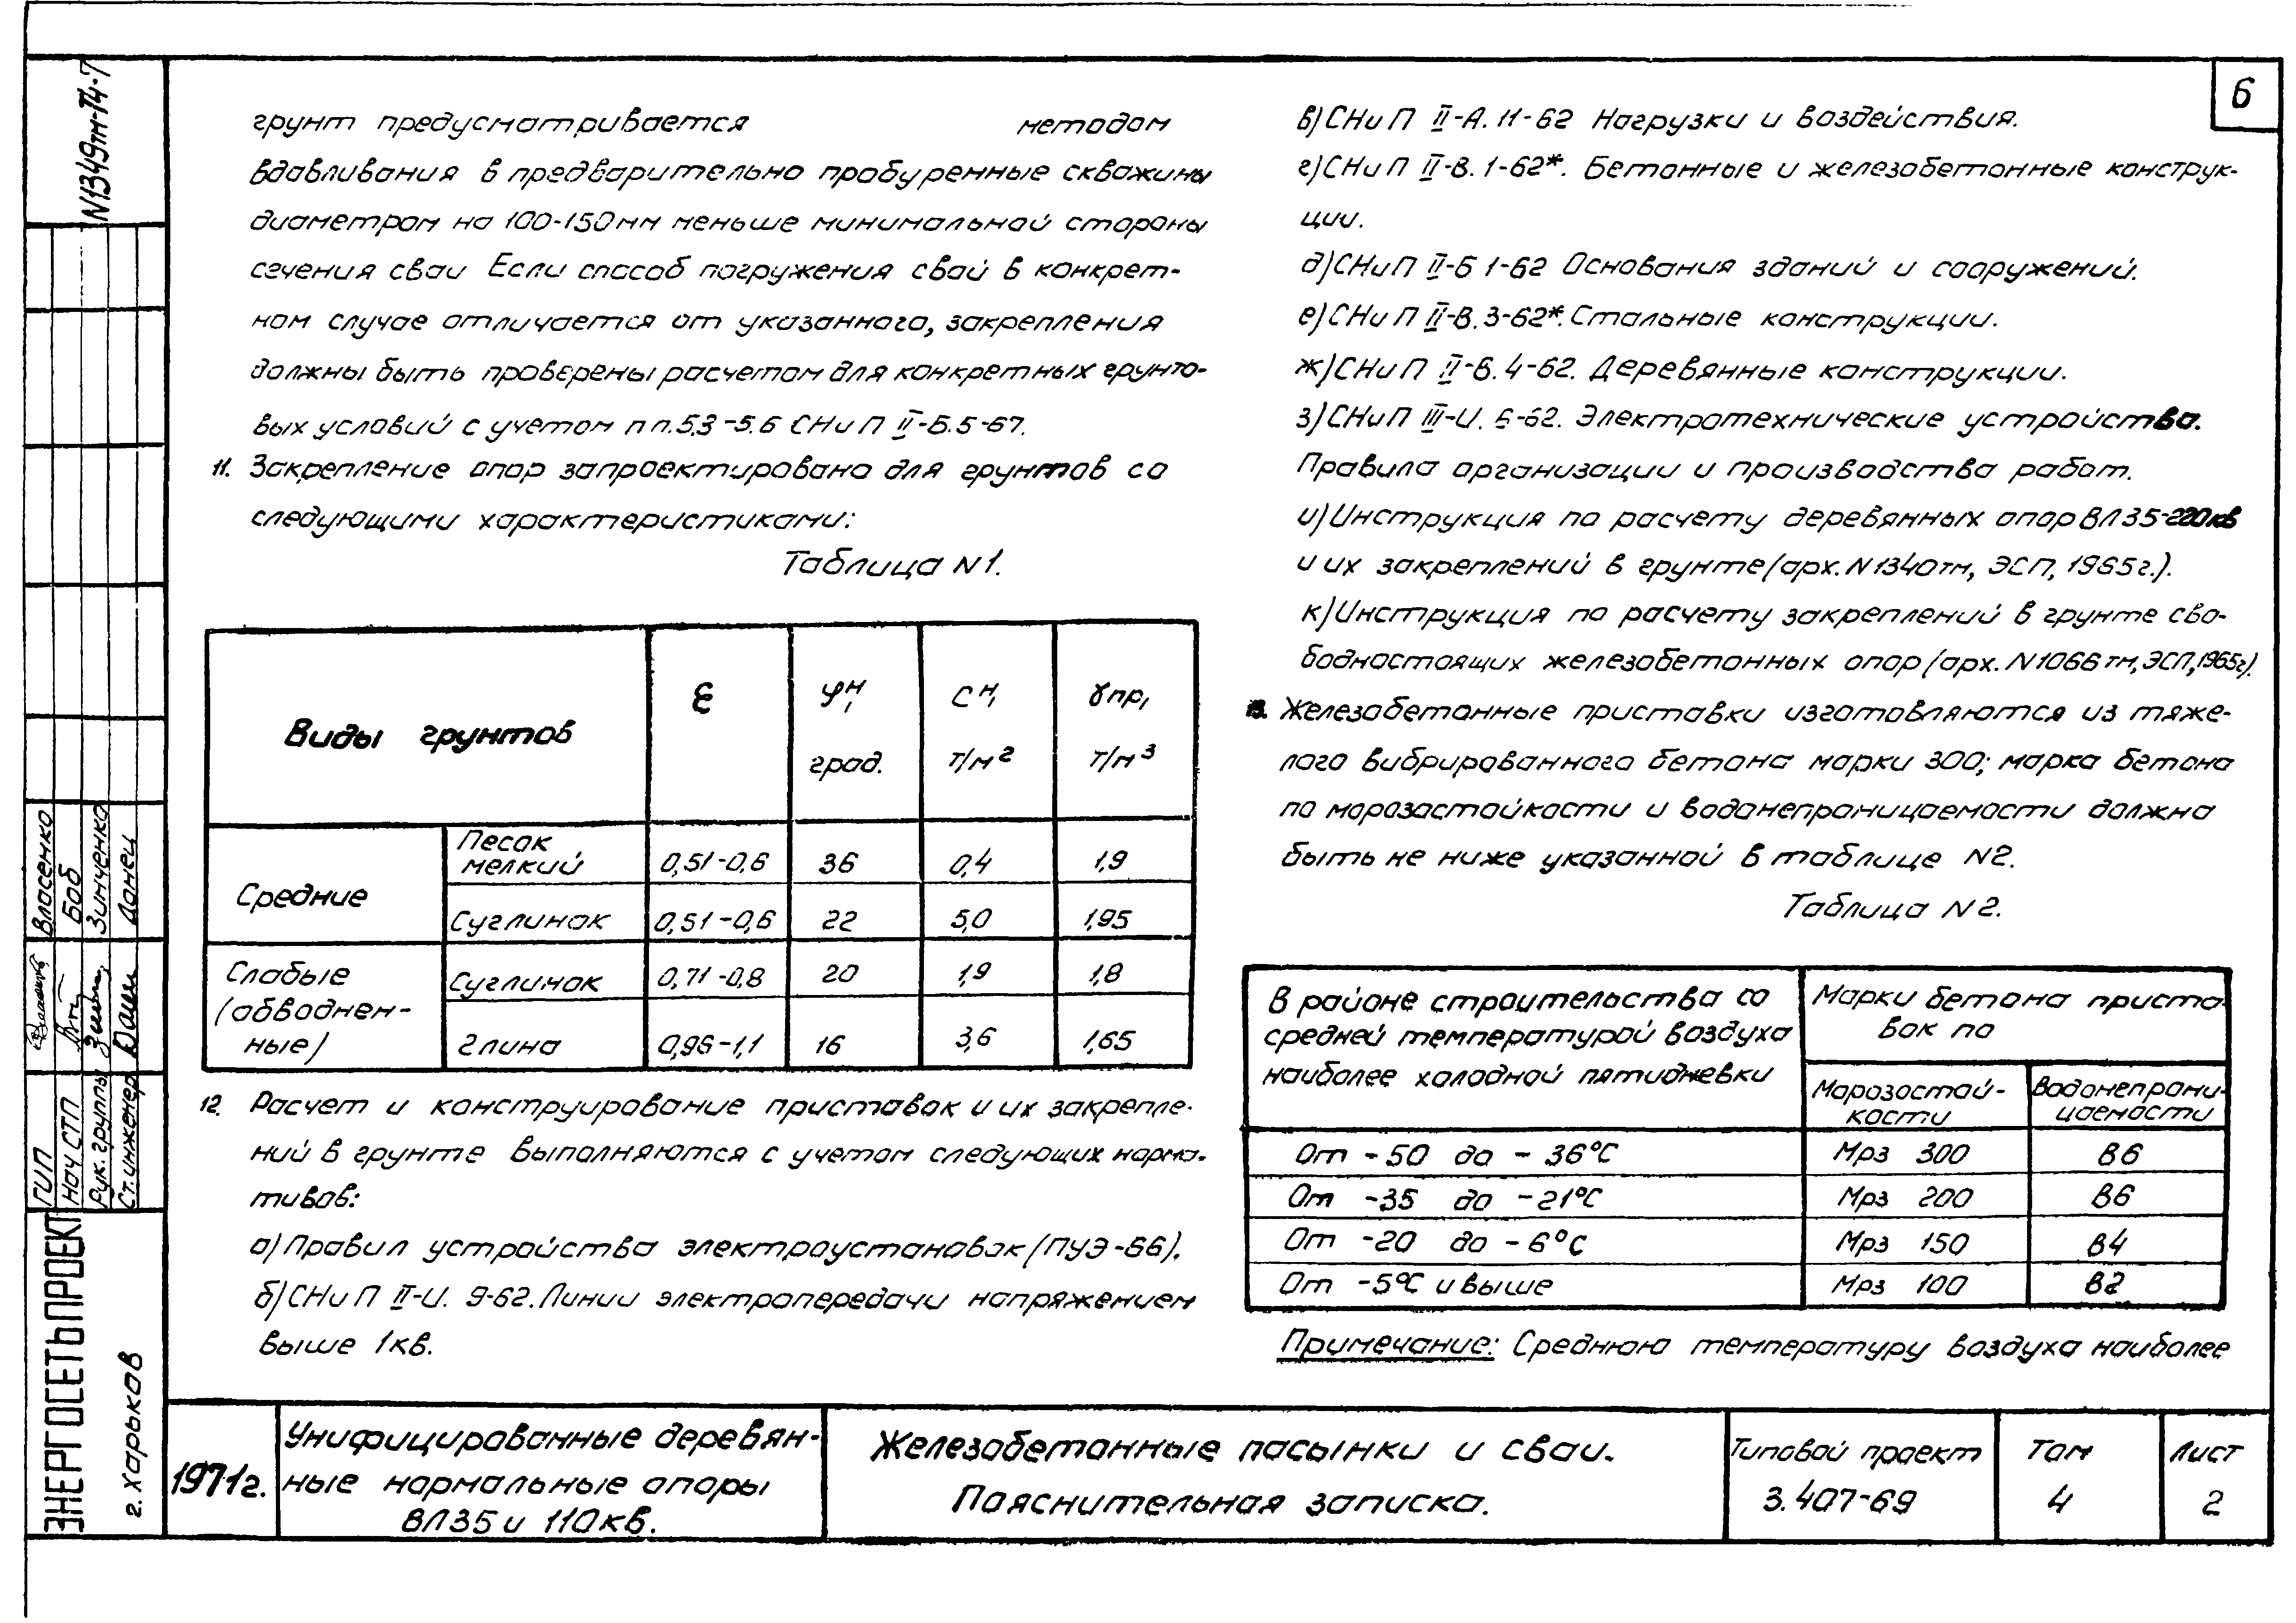 6
N1349тм-Т4-7
грунт предусматривается методом
вдавливания в предварительно пробуренные скважины
диаметром на 100-150мм меньше минимальной стороны
сечения сваи Если способ погружения свай в конкрет-
ном случае отличается от указанного, закрепления
должны быть проверены расчетом для конкретных грунто-
вых условий с учетом п п.5.3-5.6 СНиП II-Б.5-67.
11. Закрепление опор запроектировано для грунтов со
следующими характеристиками:
Таблица N1.
Виды грунтов
ε
φн, град.
Сн, т/м2
γпр, т/м3
Средние
Песок мелкий 0,51-0,6 36 0,4 1,9
Суглинок 0,51-0,6 22 5,0 1,95
Слабые
(обводнен-
ные)
Суглинок 0,71-0,8 20 1,9 1,8
Глина 0,96-1,1 16 3,6 1,65
12. Расчет и конструирование приставок и их закрепле-
ний в грунте выполняются с учетом следующих норма-
тивов:
а) Правил устройства электроустановок (ПУЭ-66).
б) СНиП II-И. 9-62. Линии электропередачи напряжением
выше 1кв.
в) СНиП II-А. 11-62 Нагрузки и воздействия.
г) СНиП II-В. 1-62*. Бетонные и железобетонные конструк-
ции.
д) СНиП II-Б 1-62 Основания зданий и сооружений.
е) СНиП II-В. 3-62*. Стальные конструкции.
ж) СНиП II-В. 4-62. Деревянные конструкции.
з) СНиП III-И. 6-62. Электротехнические устройства.
Правила организации и производства работ.
и) Инструкция по расчету деревянных опор ВЛ 35-220кв
и их закреплений в грунте (арх. N1340тм, ЭСП, 1965г.).
к) Инструкция по расчету закреплений в грунте сво-
бодностоящих железобетонных опор (арх. N1066тм, ЭСП, 1965г).
13. Железобетонные приставки изготовляются из тяже-
лого вибрированного бетона марки 300; марка бетона
по морозостойкости и водонепроницаемости должна
быть не ниже указанной в таблице N2.
Таблица N2.
В районе строительства со
средней температурой воздуха
наиболее холодной пятидневки
Марки бетона приста-
вок по
Морозостой-
кости
Водонепрони-
цаемости
От -50 до -36°С Мрз 300 В6
От -35 до -21°С Мрз 200 В6
От -20 до -6°С Мрз 150 В4
От -5°С и выше Мрз 100 В2
Примечание: Среднюю температуру воздуха наиболее
ГИП Власенко
Нач СТП Боб
Рук. группы Зинченко
Ст. инженер Донец
ЭНЕРГОСЕТЬПРОЕКТ
г. Харьков
1971г.
Унифицированные деревян-
ные нормальные опоры
ВЛ35 и 110кв.
Железобетонные пасынки и сваи.
Пояснительная записка.
Типовой проект
3.407-69
Том
4
Лист
2